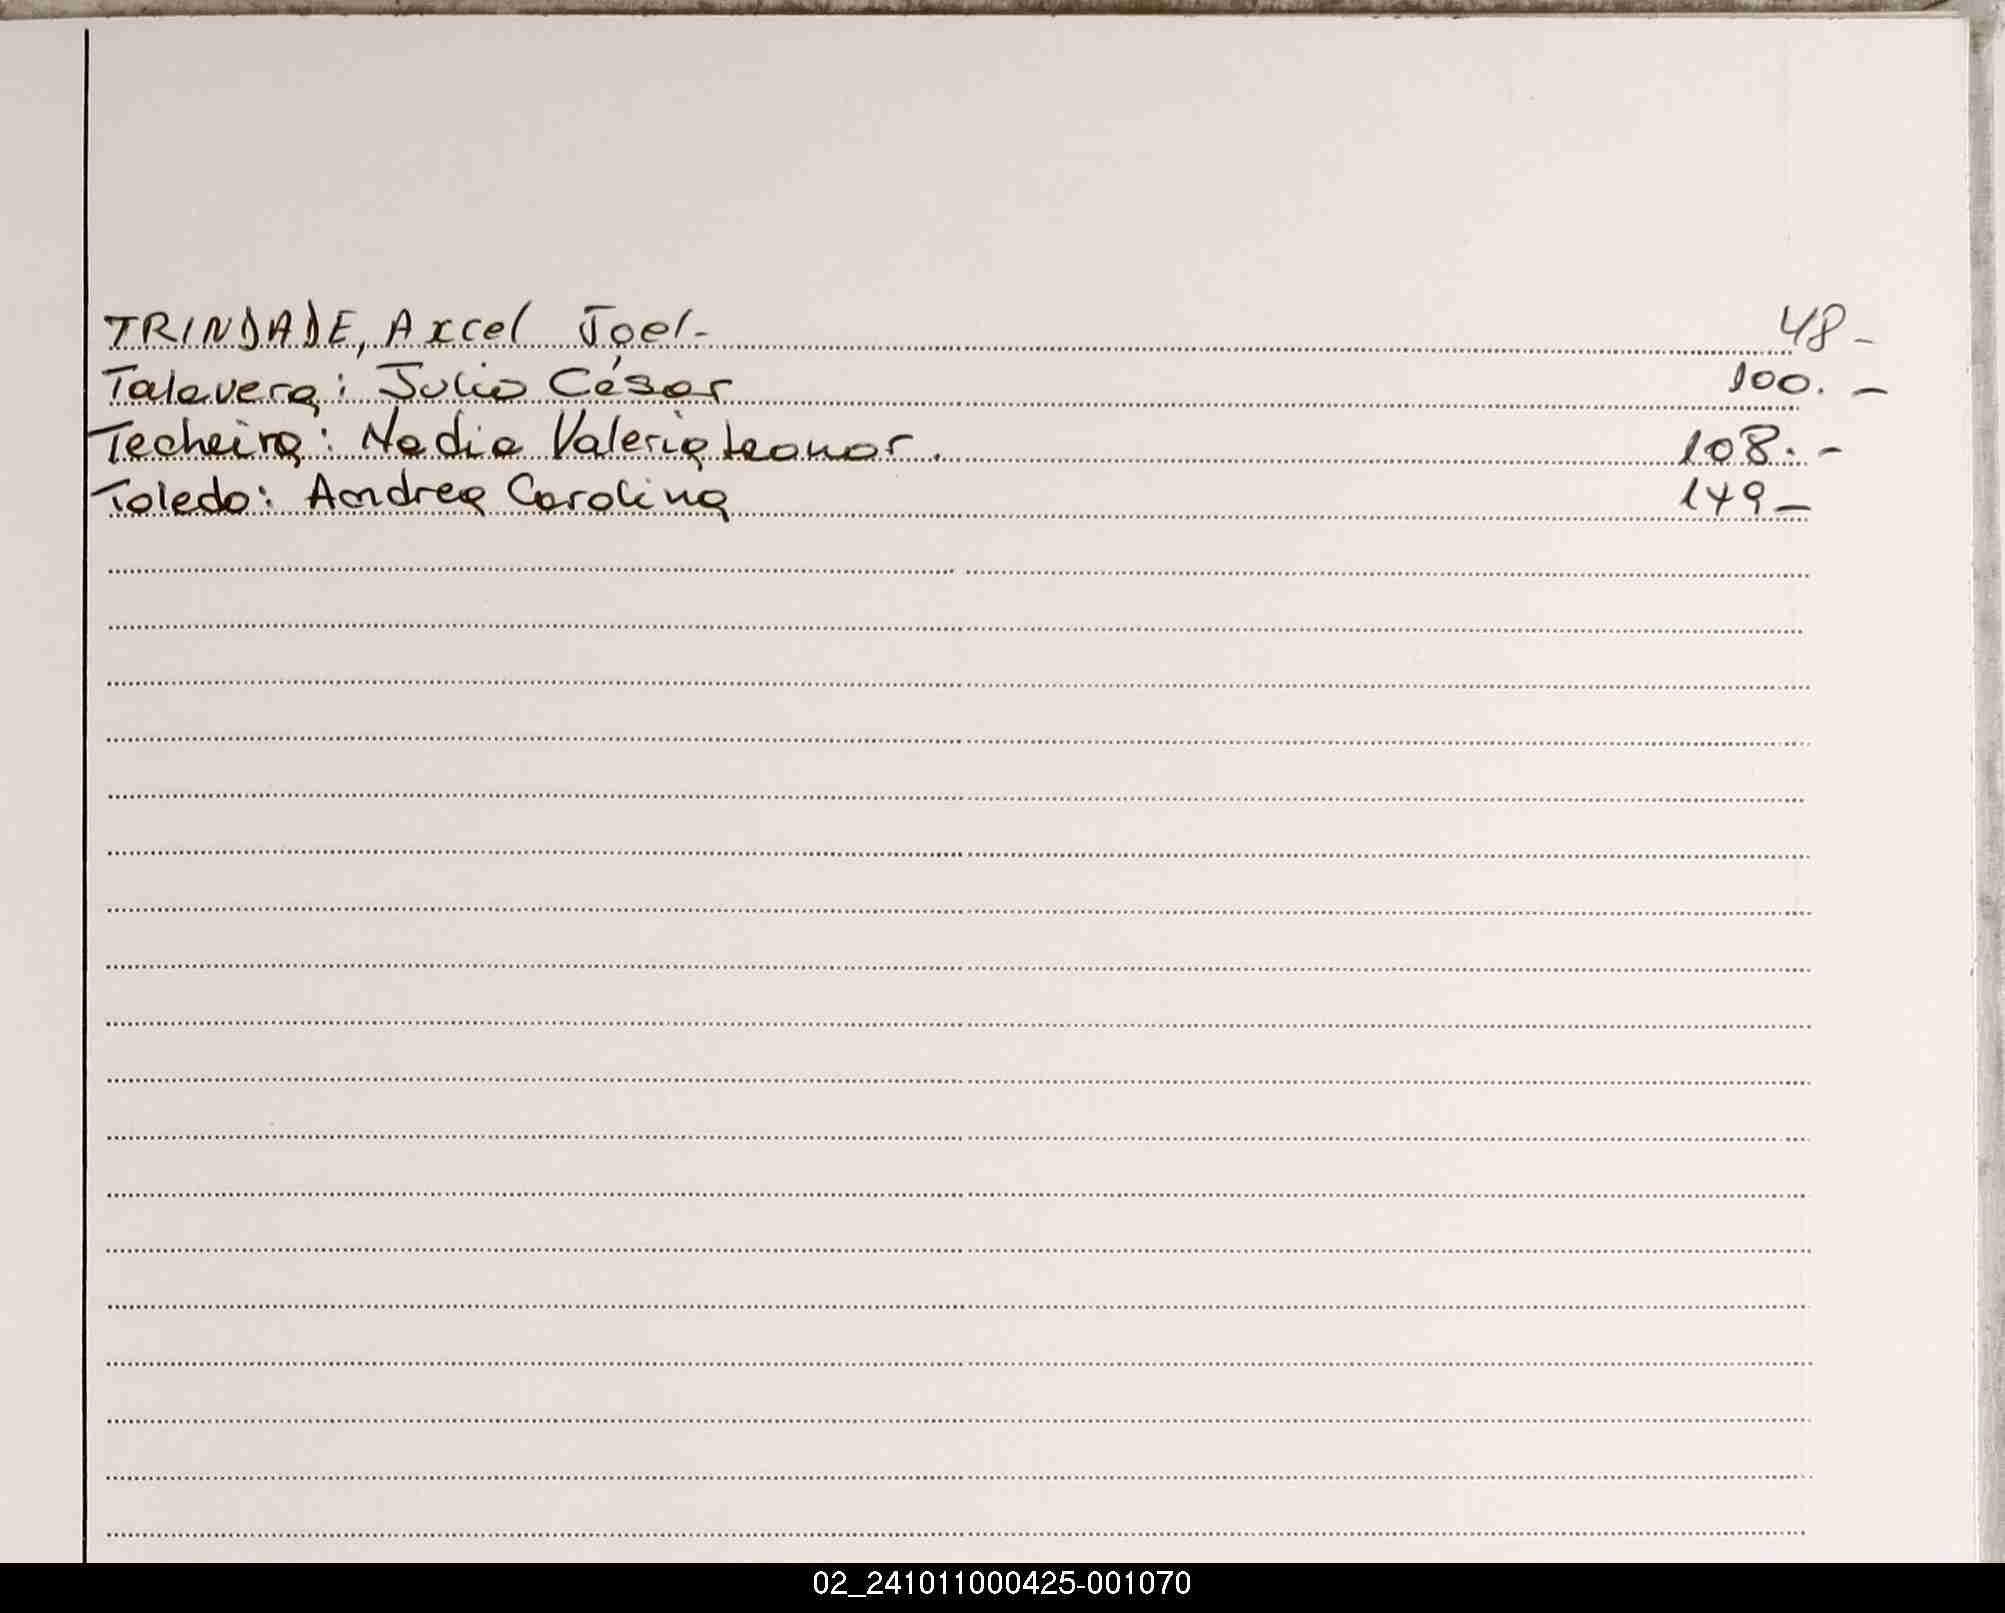 TRINDADE, Axcel Joel- 48-
Talavera: Julio César 100.-
Techeira: Nadia Valeria Leonor. 108.-
Toledo: Andrea Carolina 149-
02_241011000425-001070